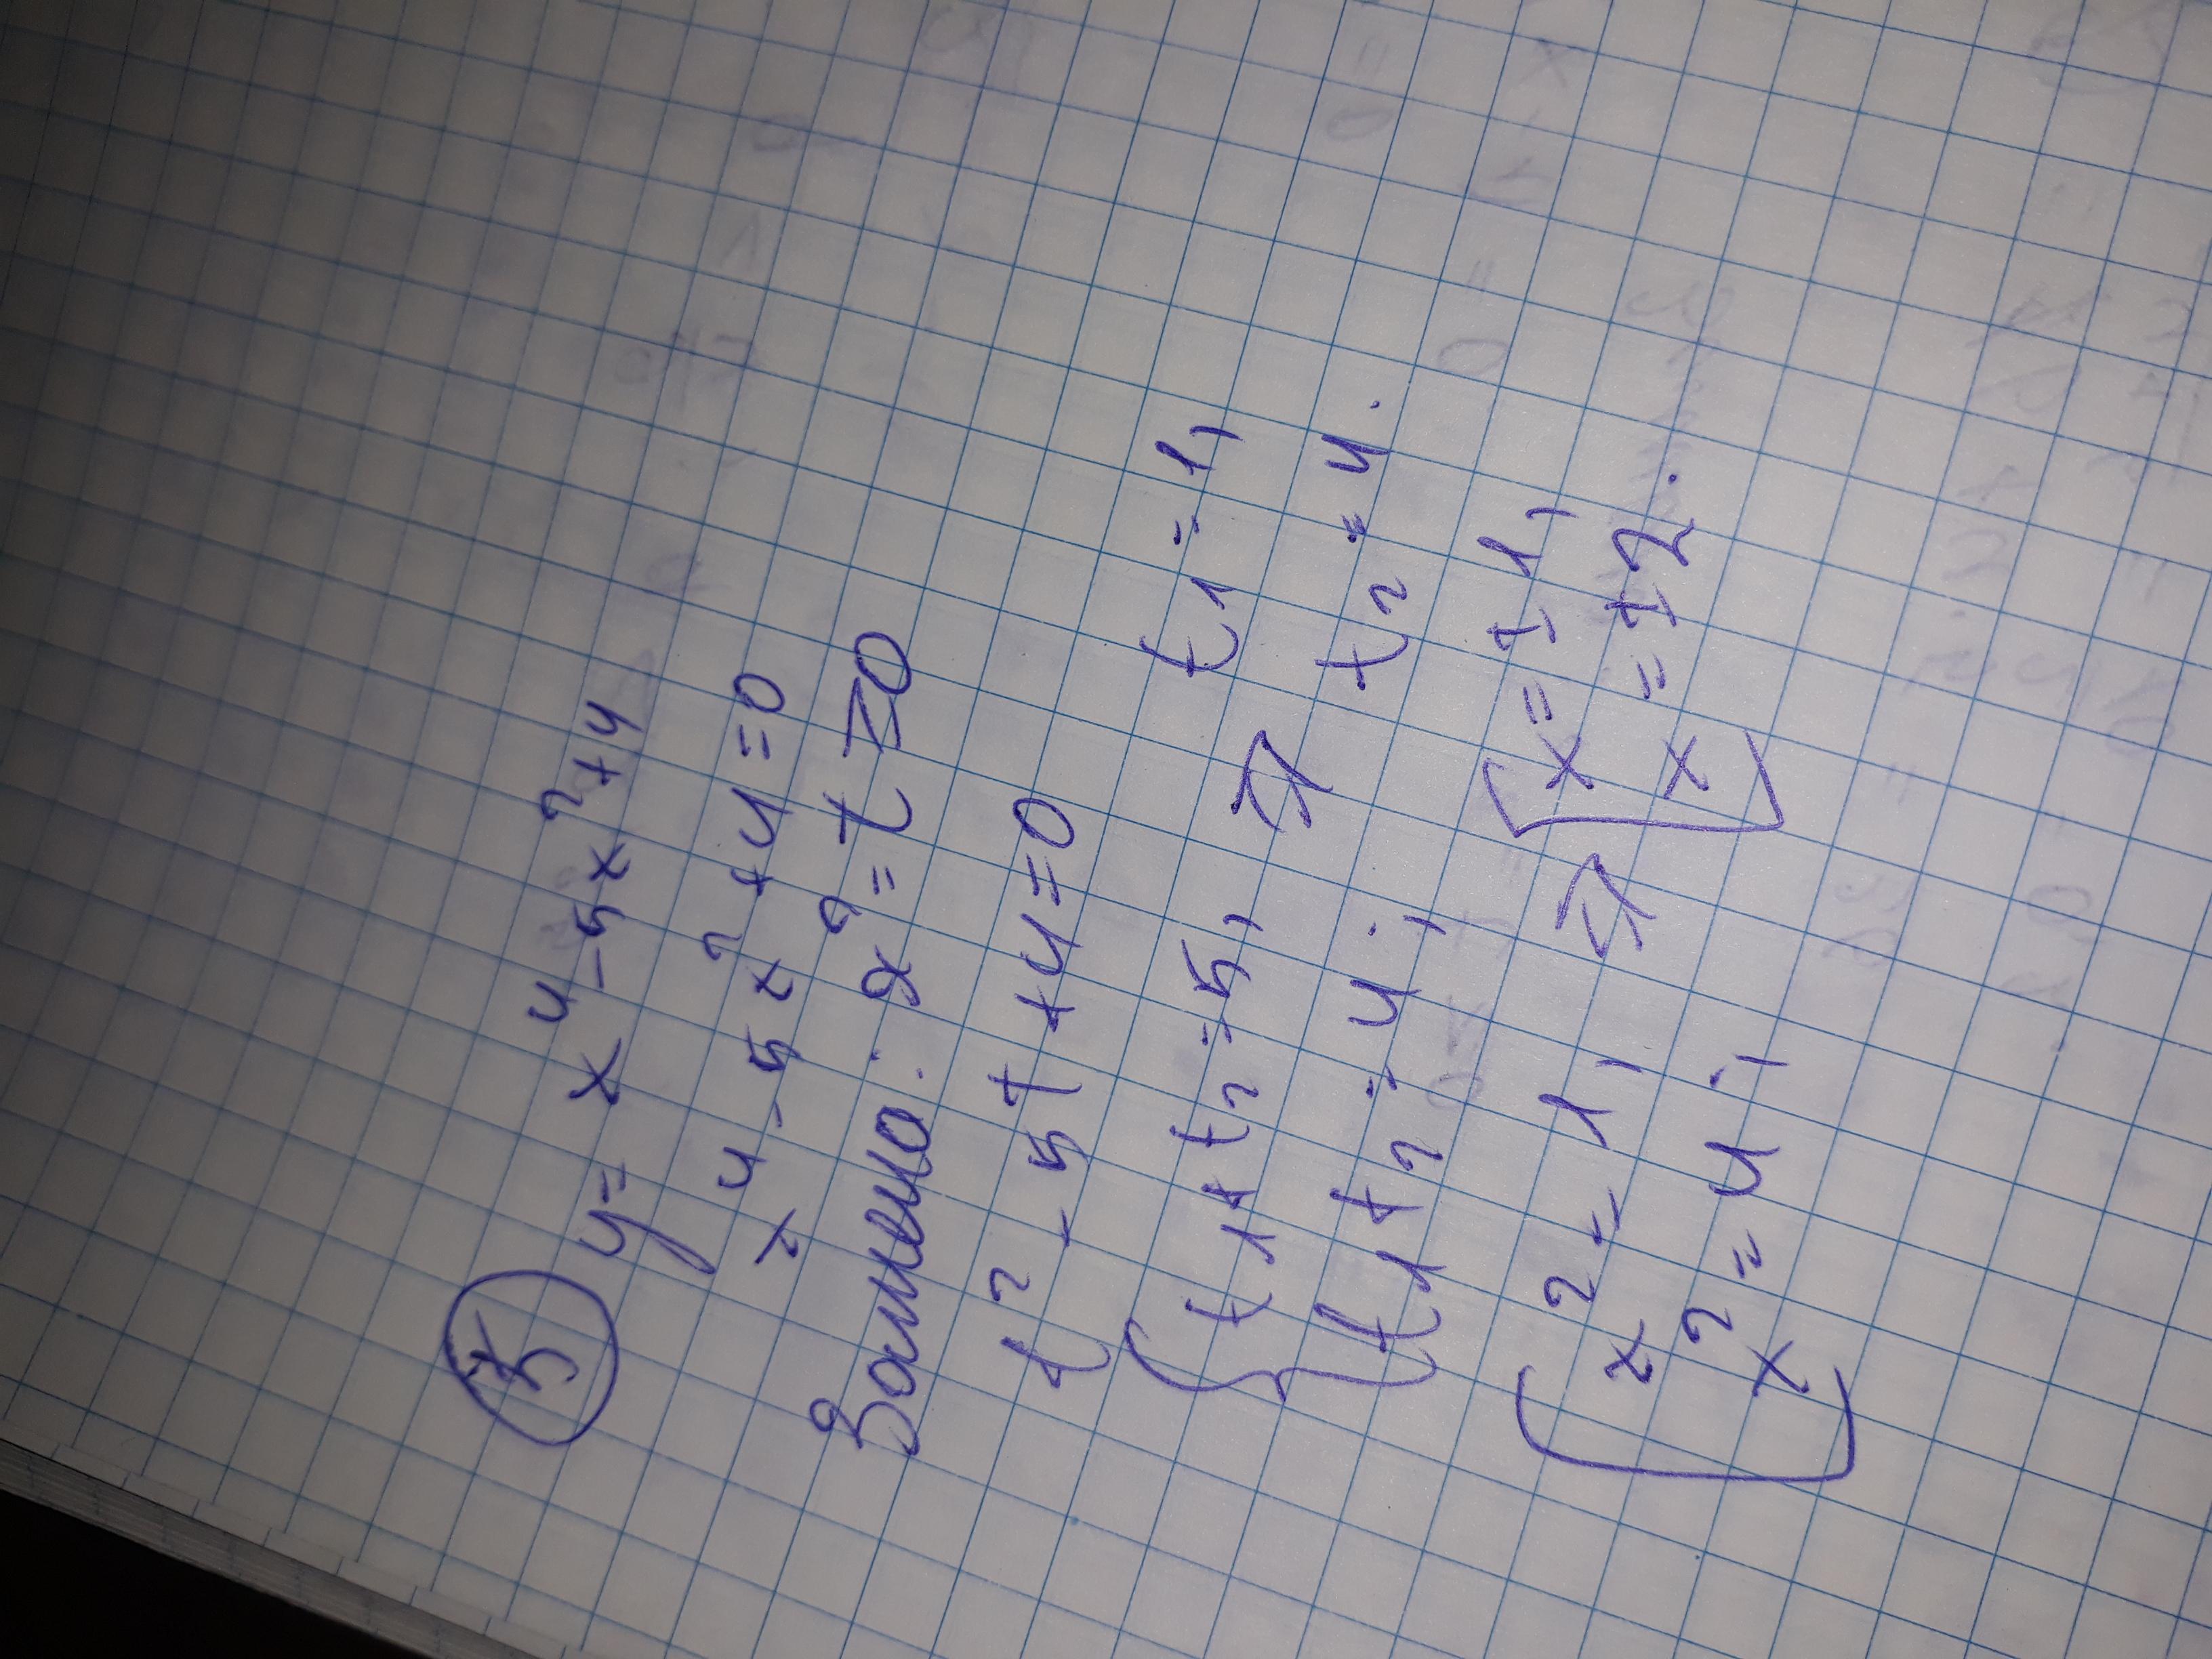 3
y = x⁴ - 5x² + 4
x⁴ - 5x² + 4 = 0
Замена: x² = t ≥ 0
t² - 5t + 4 = 0
{ t₁ + t₂ = 5, ⇒ t₁ = 1,
{ t₁ t₂ = 4; t₂ = 4.
[ x² = 1, ⇒ [ x = ±1,
[ x² = 4; [ x = ±2.